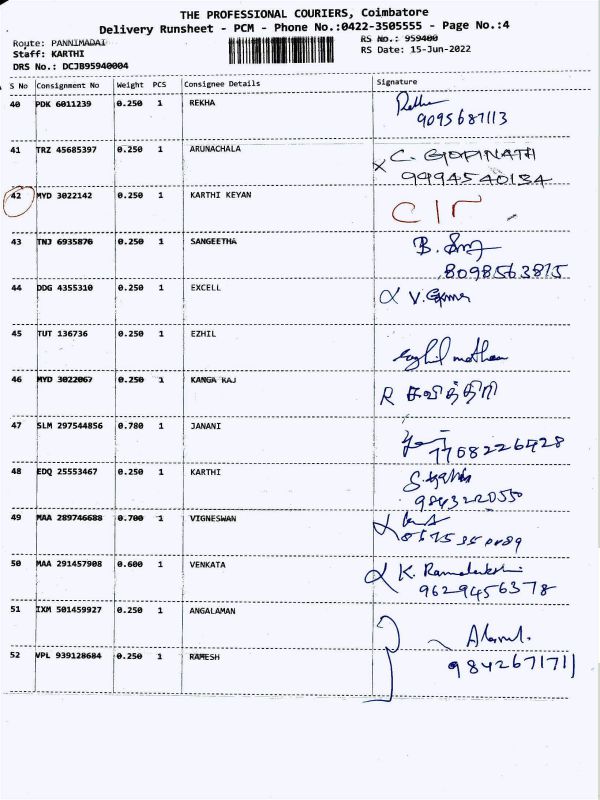 THE PROFESSIONAL COURIERS, Coimbatore
Delivery Runsheet - PCM - Phone No.:0422-3505555 - Page No.:4
Route: PANNIMADAI
RS No.: 959400
Staff: KARTHI
RS Date: 15-Jun-2022
DRS No.: DCJB95940004
S No Consignment No Weight PCS Consignee Details Signature
40 PDK 6011239 0.250 1 REKHA
9095687113
41 TRZ 45685397 0.250 1 ARUNACHALA
C. GOPINATH
9994540134
42 MYD 3022142 0.250 1 KARTHI KEYAN
43 TNJ 6935870 0.250 1 SANGEETHA
8098563815
44 DDG 4355310 0.250 1 EXCELL
45 TUT 136736 0.250 1 EZHIL
46 MYD 3022067 0.250 1 KANGA RAJ
47 SLM 297544856 0.780 1 JANANI
48 EDQ 25553467 0.250 1 KARTHI
49 MAA 289746688 0.700 1 VIGNESWAN
50 MAA 291457908 0.600 1 VENKATA
9629456378
51 IXM 501459927 0.250 1 ANGALAMAN
52 VPL 939128684 0.250 1 RAMESH
9842671711